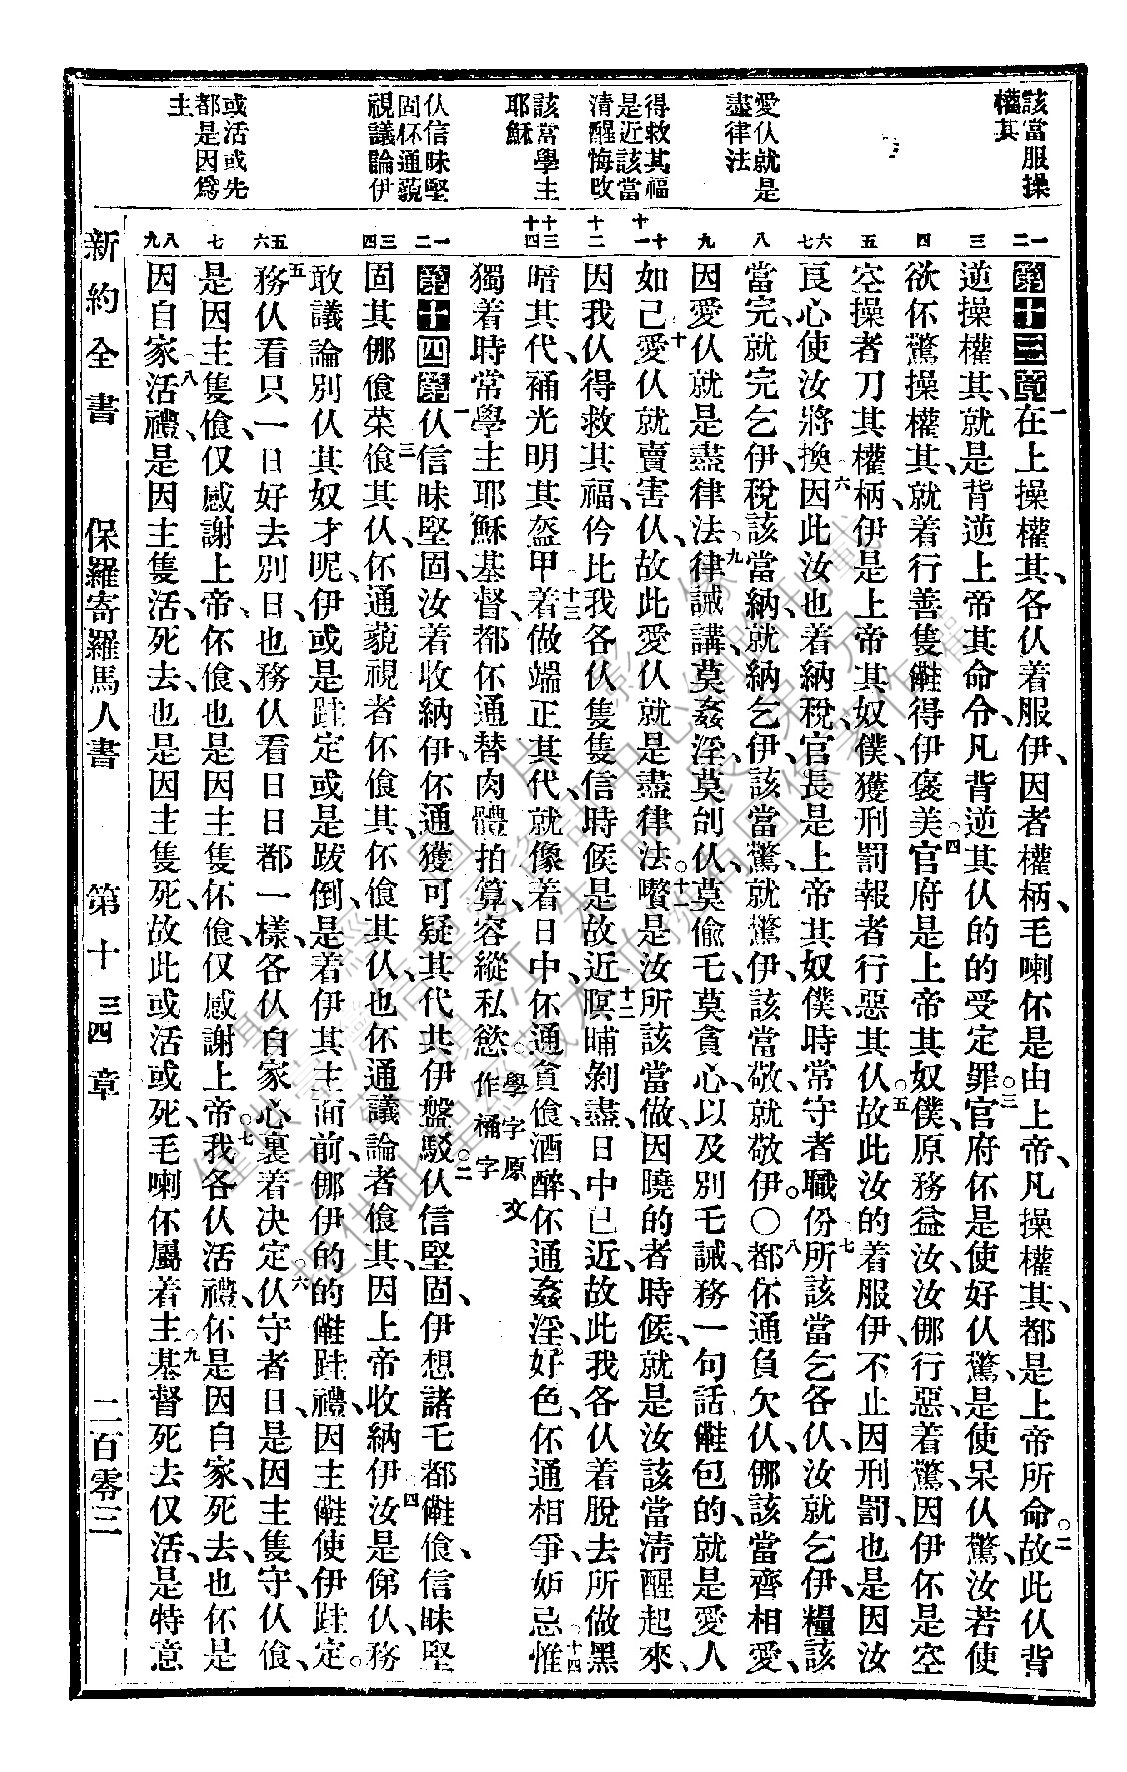 該當服操
權其
愛仫就是
盡律法
得救其福
是近該當
清醒悔改
該當學主
耶穌
仫信昧堅
固伓通藐
視議論伊
或活或先
都是因為
主
一 二 三 四 五 六 七 八 九 十 十一 十二 十三 十四 一 二 三 四 五 六 七 八 九
第十三章一在上操權其、各仫着服伊、因者權柄、毛喇伓是由上帝、凡操權其、都是上帝所命。二故此仫背
逆操權其、就是背逆上帝其命令、凡背逆其仫、的的受定罪。三官府伓是使好仫驚、是使呆仫驚、汝若使
欲伓驚操權其、就着行善、隻𣍐得伊褒美。四官府是上帝其奴僕、原務益汝、汝㑚行惡、着驚、因伊伓是空
空操者刀其權柄、伊是上帝其奴僕、獲刑罰報者行惡其仫。五故此汝的着服伊、不止因刑罰、也是因汝
良心使汝將換。六因此汝也着納稅、官長是上帝其奴僕、時常守者職份。七所該當乞各仫、汝就乞伊、糧該
當完、就完乞伊、稅該當納、就納乞伊、該當驚、就驚伊、該當敬、就敬伊。〇八都伓通負欠仫、㑚該當齊相愛、
因愛仫就是盡律法。九律誡講、莫姦淫、莫刣仫、莫偷乇、莫貪心、以及別乇誡、務一句話𣍐包的、就是愛人
如己。十愛仫就賣害仫、故此愛仫就是盡律法。十一嚽是汝所該當做、因曉的者時候、就是汝該當清醒起來、
因我仫得救其福、伱比我各仫隻隻信時候是故近。十二暝晡剝盡、日中已近、故此我各仫着脫去所做黑
暗其代、補光明其盔甲。十三着做端正其代、就像着日中、伓通貪飡酒醉、伓通姦淫好色、伓通相爭妬忌。十四惟
獨着時常學主耶穌基督、都伓通替肉體拍算、容縱私慾。學字原文作補字
第十四章一仫信昧堅固、汝着收納伊、伓通獲可疑其代共伊盤駁。二仫信堅固、伊想諸乇都𣍐飡、信昧堅
固其㑚飡菜。三飡其仫、伓通藐視者伓飡其、伓飡其仫、也伓通議論者飡其、因上帝收納伊。四汝是俤仫、務
敢議論別仫其奴才呢、伊或是跬定、或是跋倒、是着伊其主面前、㑚伊的的𣍐跬禮、因主𣍐使伊跬定。
五務仫看只一日好去別日、也務仫看日日都一樣、各仫自家心裏着決定。六仫守者日、是因主隻守、仫飡、
是因主隻飡、仅感謝上帝、伓飡、也是因主隻伓飡、仅感謝上帝。七我各仫活禮、伓是因自家、死去也伓是
因自家。八活禮是因主隻活、死去也是因主隻死、故此或活或死、毛喇伓屬着主。九基督死去仅活、是特意
新約全書 保羅寄羅馬人書 第十三四章 二百零三